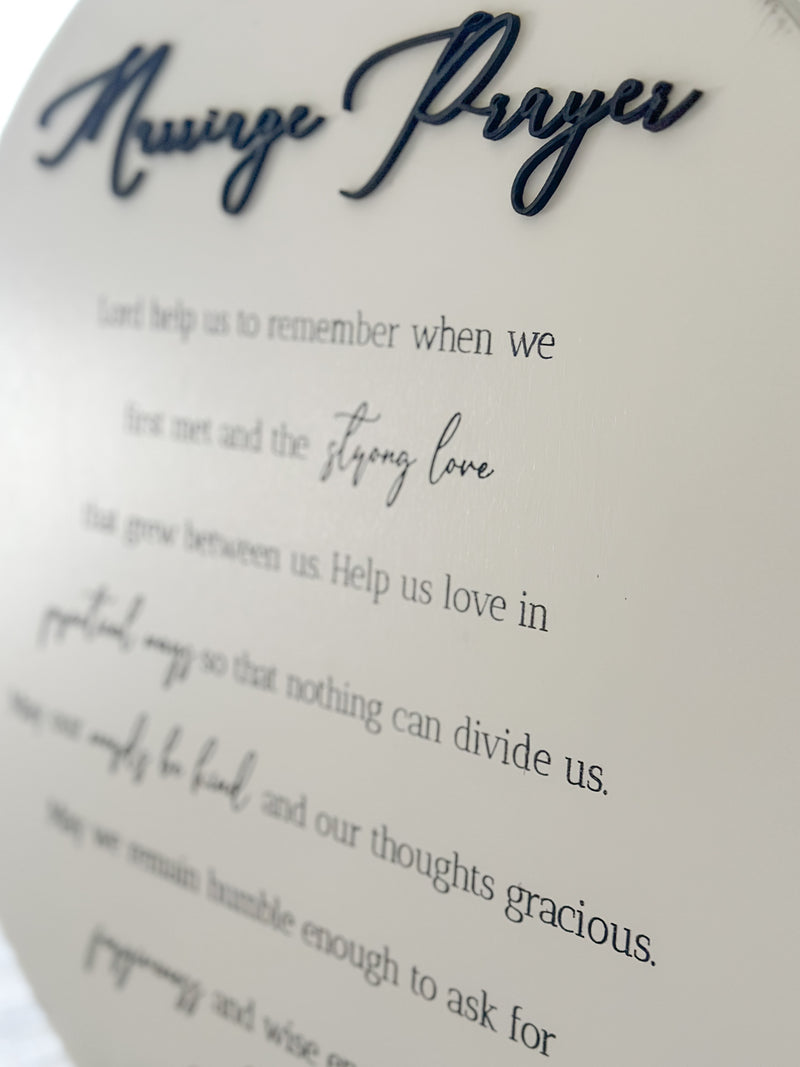 Marriage Prayer
Lord help us to remember when we
first met and the strong love
that grew between us. Help us love in
practical ways so that nothing can divide us.
May our words be kind and our thoughts gracious.
May we remain humble enough to ask for
forgiveness and wise